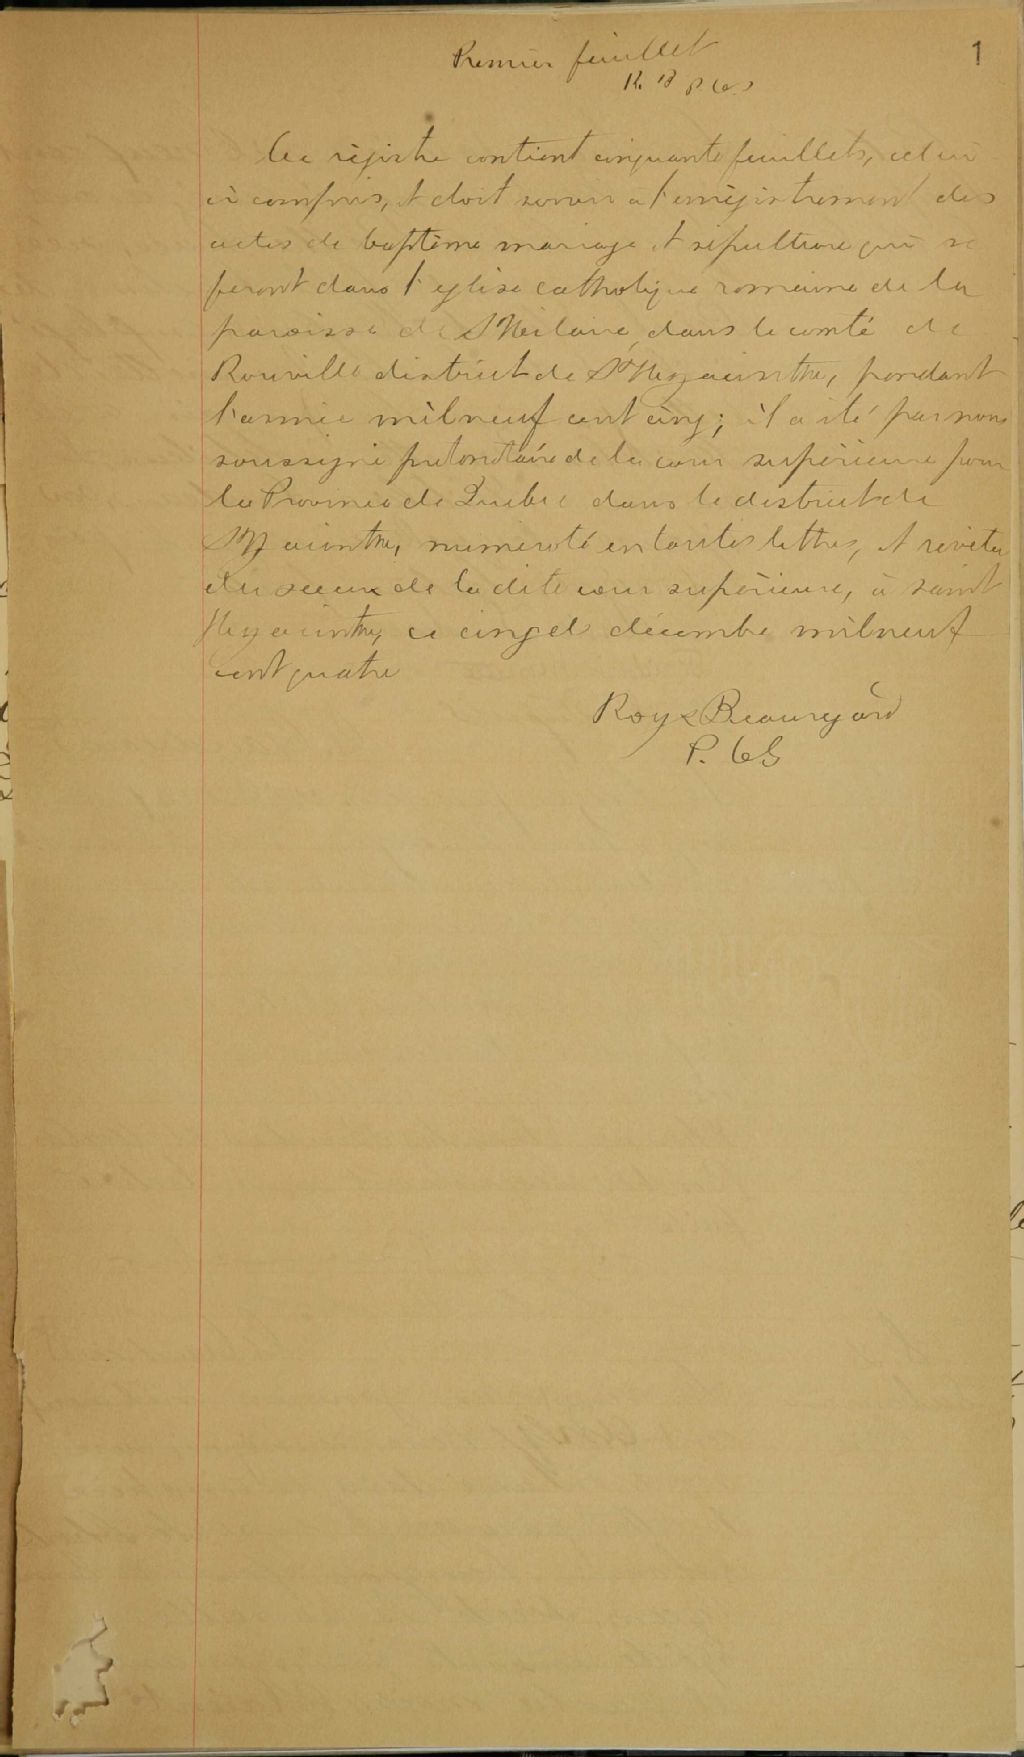 1
Premier feuillet
R. B P. C. S
Ce registre contient cinquante feuillets, celui
ci compris, et doit servir à l'enregistrement des
actes de baptême mariage et sépulture qui se
feront dans l'église catholique romaine de la
paroisse de St Hilaire, dans le comté de
Rouville district de St Hyacinthe, pendant
l'année mil neuf cent cinq; il a été par nous
soussigné protonotaire de la cour supérieure pour
la Province de Québec dans le district de
St Hyacinthe, numéroté en toutes lettres, et revêtu
du sceau de la dite cour supérieure, à saint
Hyacinthe, ce cinq de décembre mil neuf
cent quatre
Roy & Beauregard
P. C S